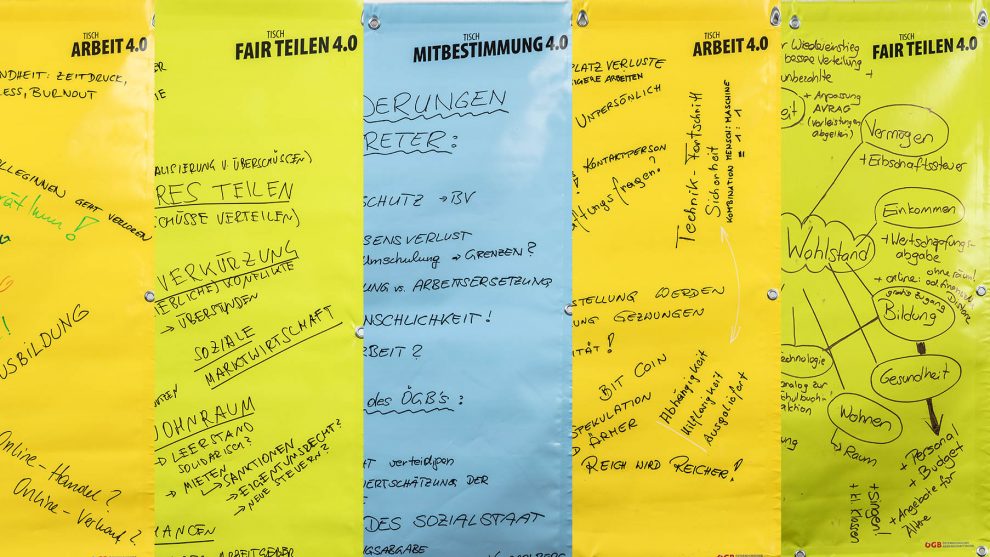 TISCH
ARBEIT 4.0
NDHEIT: ZEITDRUCK,
ESS, BURNOUT
OLLEGINNEN GEHT VERLOREN
USBILDUNG
Online-Handel?
Online-Verkauf?
TISCH
FAIR TEILEN 4.0
ALISIERUNG V. ÜBERSCHÜSSEN)
RES TEILEN
SCHÜSSE VERTEILEN)
VERKÜRZUNG
IEBLICHE) KONFLIKTE
→ ÜBERSTUNDEN
SOZIALE
MARKTWIRTSCHAFT
OHNRAUM
→ LEERSTAND
SOLIDARISCH?
→ MIETEN
→ SANKTIONEN
→ EIGENTUMSRECHT?
→ NEUE STEUERN?
NANCEN
ARBEITGEBER
TISCH
MITBESTIMMUNG 4.0
DERUNGEN
RETER:
SCHUTZ → BV
SENSVERLUST
Umschulung → GRENZEN?
UNG vs. ARBEITSERSETZUNG
NSCHLICHKEIT!
RBEIT?
des ÖGB's:
AT verteidigen
ERTSCHÄTZUNG DER
DES SOZIALSTAAT
NGSABGABE
TISCH
ARBEIT 4.0
PLATZ VERLUSTE
IGERE ARBEITEN
UNPERSÖNLICH
KONTAKTPERSON
ftungsfragen?
Technik-Fortschritt
Sicherheit
KOMBINATION MENSCH: MASCHINE
= 1:1
STELLUNG WERDEN
UNG GEZWUNGEN
ITÄT!
BIT COIN
SPEKULATION
ÄRMER
REICH WIRD REICHER!
Abhängigkeit
Hilflosigkeit
Ausgeliefert
TISCH
FAIR TEILEN 4.0
r Wiedereinstieg
bessere Verteilung
unbezahlte
+ Anpassung
AVRAG
(Vorleistungen
abgelten)
eit
Vermögen
+ Erbschaftssteuer
Einkommen
+ Wertschöpfungs-
abgabe
Wohlstand
ohne räuml.
gratis Zugang
Bildung
echnologie
nalog zur
Gesundheit
Wohnen
→ Raum
+ Personal
+ Budget
+ Angebote für
Ältere
+ Singen!
+ kl. Klassen
ÖGB